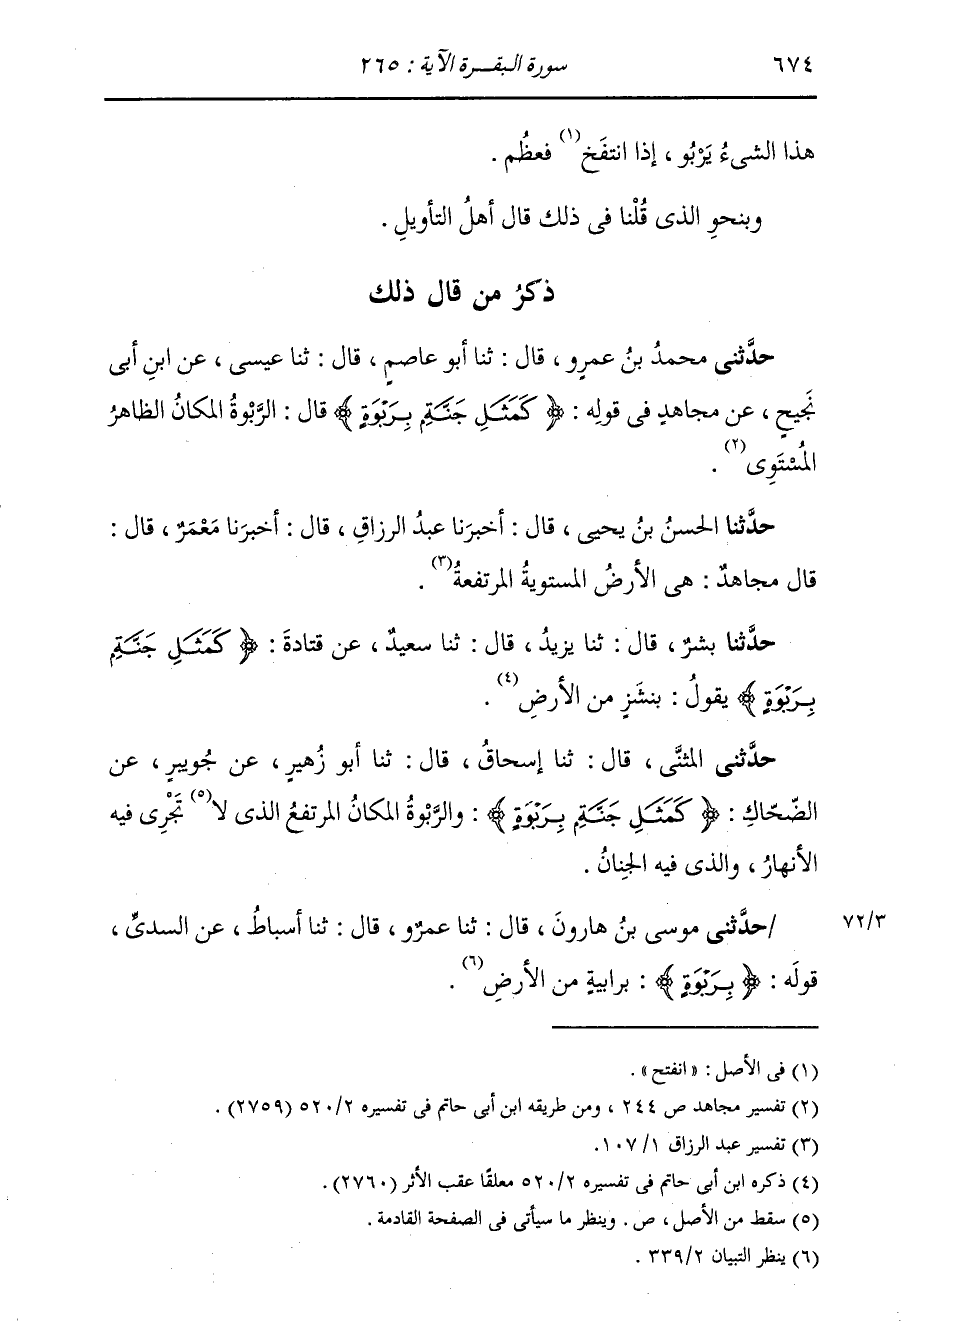 ٦٧٤ سورة البقـــرة الآية : ٢٦٥
هذا الشىءُ يَرْبُو ، إذا انتفَخ(١) فعظُم .
وبنحوِ الذى قُلْنا فى ذلك قال أهلُ التأويلِ .
ذكرُ من قال ذلك
حدَّثنى محمدُ بنُ عمرٍو ، قال : ثنا أبو عاصمٍ ، قال : ثنا عيسى ، عن ابنِ أبى
نَجيحٍ ، عن مجاهدٍ فى قولِه : ﴿ كَمَثَلِ جَنَّةٍۭ بِرَبْوَةٍ ﴾ قال : الرَّبْوةُ المكانُ الظاهرُ
المُسْتَوِى(٢) .
حدَّثنا الحسنُ بنُ يحيى ، قال : أخبرَنا عبدُ الرزاقِ ، قال : أخبرَنا مَعْمَرٌ ، قال :
قال مجاهدٌ : هى الأرضُ المستويةُ المرتفعةُ(٣) .
حدَّثنا بشرٌ ، قال : ثنا يزيدُ ، قال : ثنا سعيدٌ ، عن قتادةَ : ﴿ كَمَثَلِ جَنَّةٍۭ
بِرَبْوَةٍ ﴾ يقولُ : بنشَزٍ من الأرضِ(٤) .
حدَّثنى المثنَّى ، قال : ثنا إسحاقُ ، قال : ثنا أبو زُهيرٍ ، عن جُويبرٍ ، عن
الضّحّاكِ : ﴿ كَمَثَلِ جَنَّةٍۭ بِرَبْوَةٍ ﴾ : والرَّبْوةُ المكانُ المرتفعُ الذى لا(٥) تَجْرِى فيه
الأنهارُ ، والذى فيه الجِنانُ .
٧٢/٣ /حدَّثنى موسى بنُ هارونَ ، قال : ثنا عمرٌو ، قال : ثنا أسباطُ ، عن السدىِّ ،
قولَه : ﴿ بِرَبْوَةٍ ﴾ : برابيةٍ من الأرضِ(٦) .
(١) فى الأصل : « انفتح » .
(٢) تفسير مجاهد ص ٢٤٤ ، ومن طريقه ابن أبى حاتم فى تفسيره ٥٢٠/٢ (٢٧٥٩) .
(٣) تفسير عبد الرزاق ١٠٧/١.
(٤) ذكره ابن أبى حاتم فى تفسيره ٥٢٠/٢ معلقًا عقب الأثر (٢٧٦٠) .
(٥) سقط من الأصل ، ص . وينظر ما سيأتى فى الصفحة القادمة .
(٦) ينظر التبيان ٣٣٩/٢ .